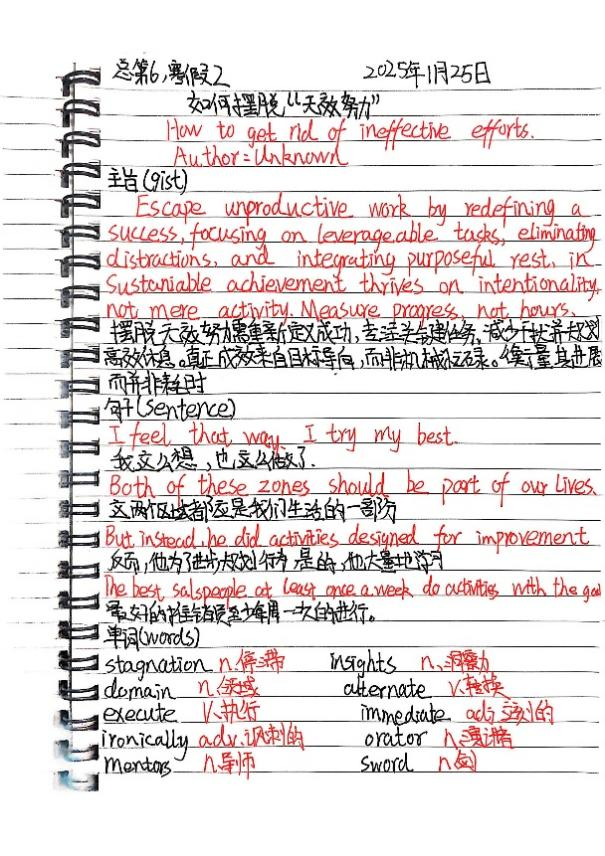 总第6,寒假2 2025年1月25日
如何摆脱“无效努力”
How to get rid of ineffective efforts.
Author=Unknown
主旨(gist)
Escape unproductive work by redefining a
success, focusing on leverageable tasks, eliminating
distractions, and integrating purposeful rest, in
Sustaniable achievement thrives on intentionality,
not mere activity. Measure progress, not hours.
摆脱无效努力需重新定义成功,专注关键任务,减少干扰并规划
高效休息。真正成效来自目标导向,而非机械忙碌。衡量其进展
而并非耗时
句子(sentence)
I feel that way. I try my best.
我这么想,也这么做了.
Both of these zones should be part of our lives.
这两个区域都应是我们生活的一部分
But instead, he did activities designed for improvement
反而,他为了进步规划行动,是的,他大量地学习
The best salspeople at least once a week do activities with the goal
最好的推销员至少每周一次的进行。
单词(words)
stagnation n.停滞 insights n.洞察力
domain n.领域 alternate v.转换
execute v.执行 immediate adj.立刻的
ironically adv.讽刺的 orator n.演讲者
mentors n.导师 sword n.剑